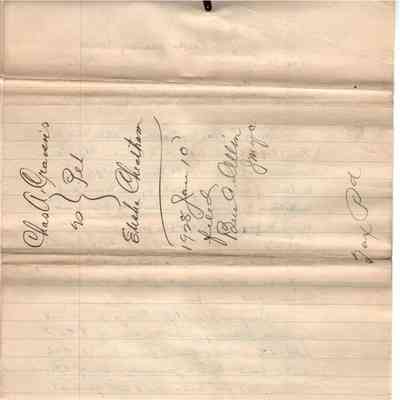 Chas A. Graves's
vs } Pet
Elisha Cheatham
1928 Jan 10
filed
Ben D. Allin
Tax Pd